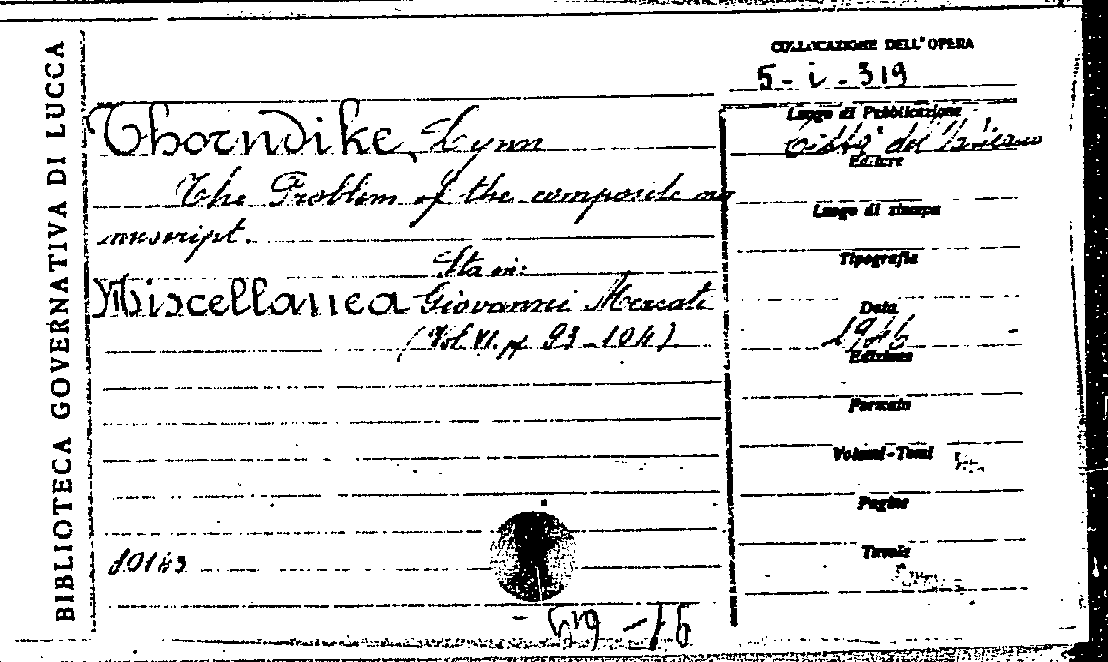 BIBLIOTECA GOVERNATIVA DI LUCCA
COLLOCAZIONE DELL'OPERA
5-i-319
Thorndike, Lynn
The Problem of the composite ma
nuscript.
Sta in:
Miscellanea Giovanni Mercati
(Vol. VI. pp. 93-104)
10143
Luogo di Pubblicazione
Città del Vaticano
Editore
Luogo di stampa
Tipografia
Data
1946
Edizione
Formato
Volumi-Tomi
Pagine
Tavole